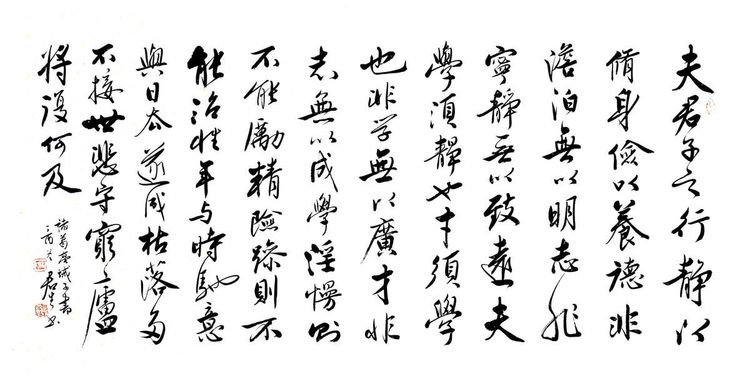 夫君子之行静以
脩身儉以養德非
澹泊無以明志非
寧靜無以致遠夫
學須靜也才須學
也非学無以廣才非
志無以成學淫慢則
不能勵精險躁則不
能治性年与時馳意
與日去遂成枯落多
不接世悲守窮廬
將復何及
諸葛亮誡子書